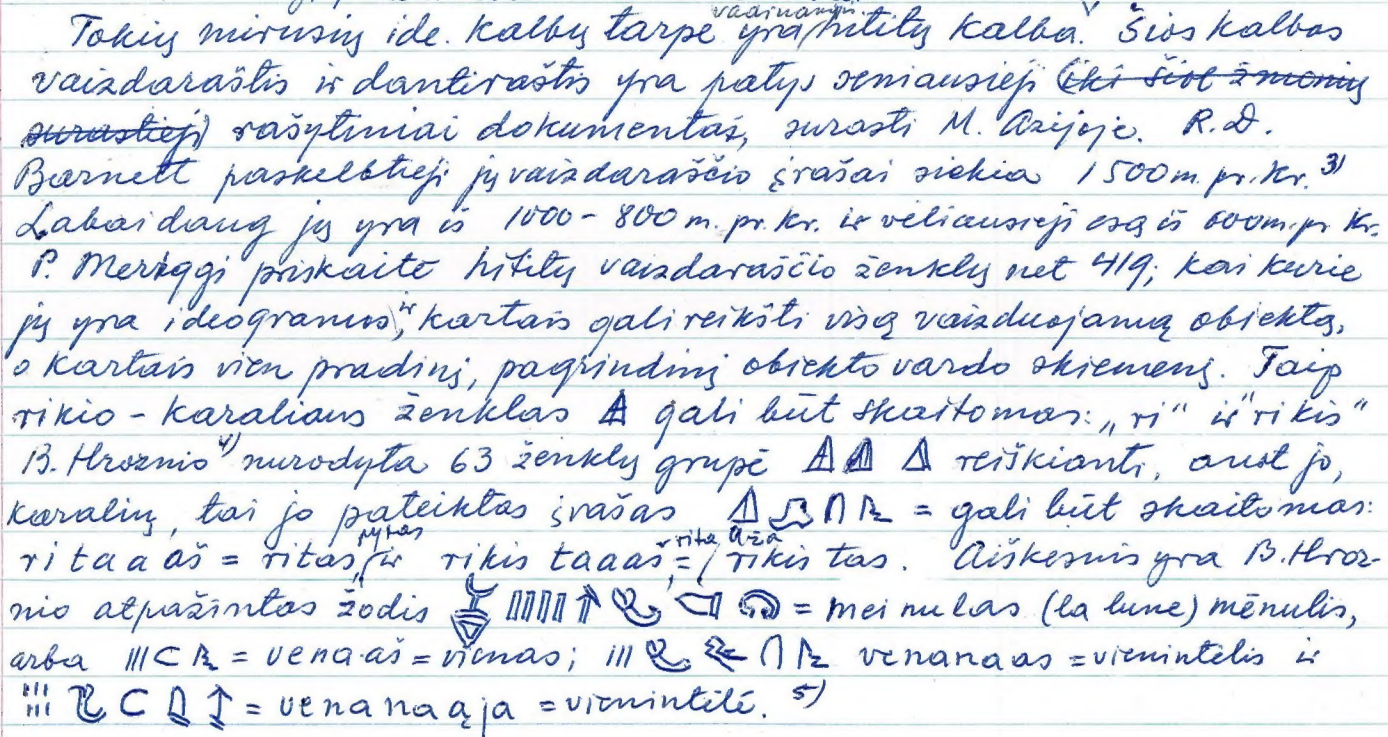 Tokių mirusių ide. kalbų tarpe yra vadinamoji hititų kalba. Šios kalbos
vaizdaraštis ir dantiraštis yra patys seniausieji (iki šiol žmonių
surastieji) rašytiniai dokumentai, surasti M. Azijoje. R.D.
Barnett paskelbtieji jų vaizdaraščio įrašai siekia 1500 m. pr. Kr. 3)
Labai daug jų yra iš 1000-800 m. pr. Kr. ir vėliausieji esą iš 600 m. pr Kr.
P. Meriggi priskaitė hititų vaizdaraščio ženklų net 419; kai kurie
jų yra ideogramos, ir kartais gali reikšti visą vaizduojamą objektą,
o kartais vien pradinį, pagrindinį objekto vardo skiemenį. Taip
rikio - karaliaus ženklas gali būt skaitomas: „ri“ ir "rikis“
B. Hroznio 4) nurodyta 63 ženklų grupė reiškianti, anot jo,
karalių, tai jo pateiktas įrašas = gali būt skaitomas:
ri ta a aš = ritas, ir rikis taaaš, = rikis tas. Aiškesnis yra B. Hroz-
nio atpažintas žodis = mei nulas (la lune) mėnulis,
arba = vena-aš = vienas; venanaas = vienintelis ir
= venanaąja = vienintėlė. 5)